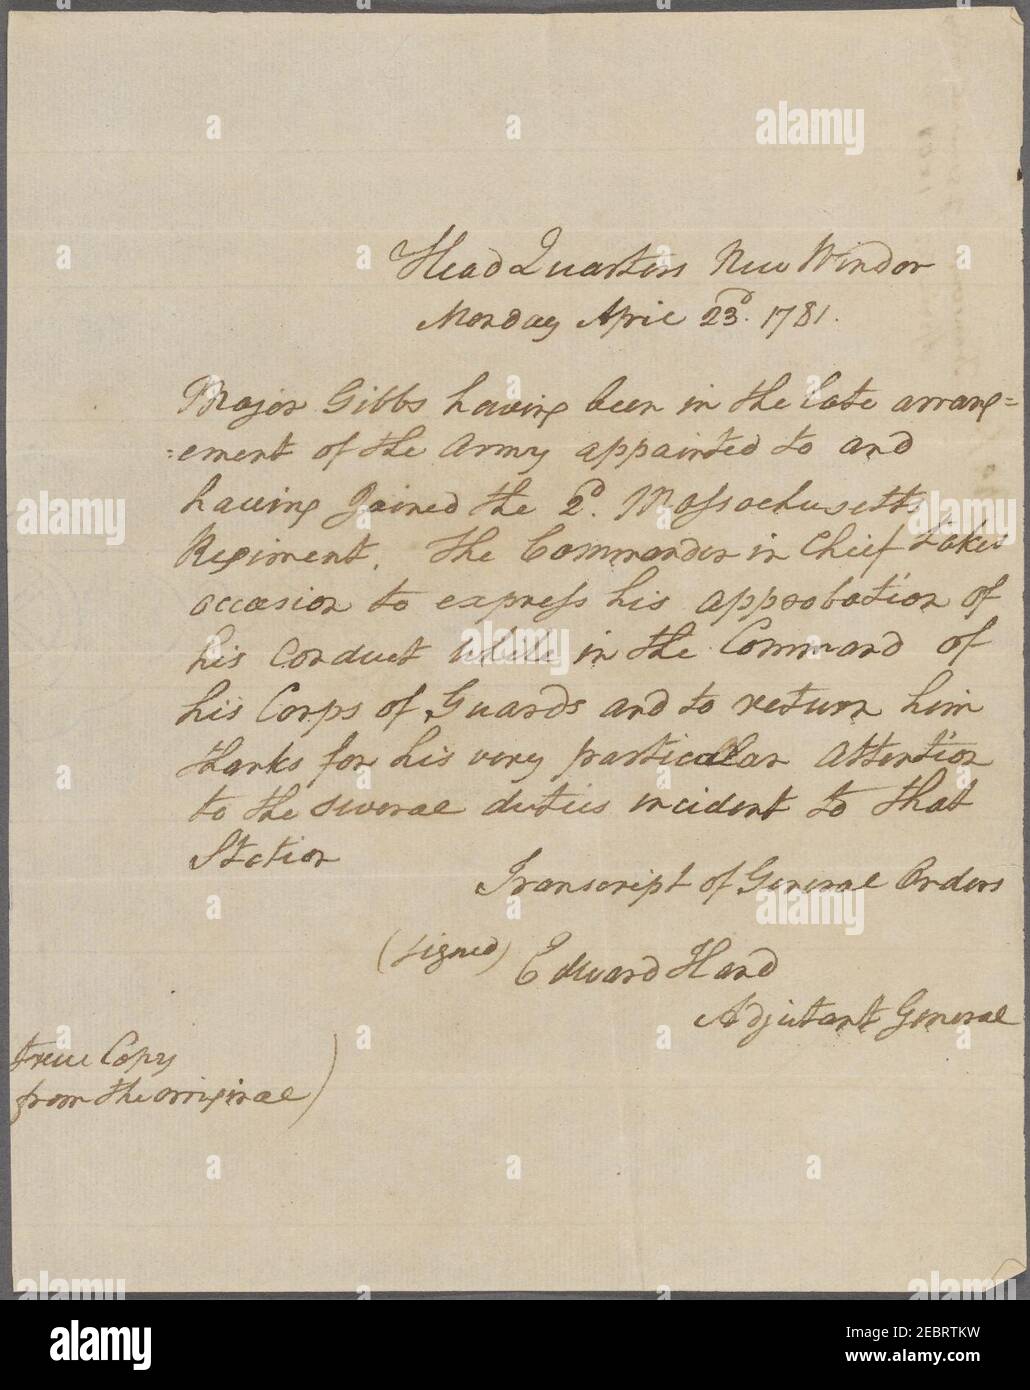 Head Quarters New Windor
Monday April 23d. 1781.
Major Gibbs having been in the late arrang=
=ement of the Army appointed to and
having Joined the 2d. Massachusetts
Regiment. The Commander in Chief takes
occasion to express his approbation of
his Conduct while in the Command of
his Corps of Guards and to return him
thanks for his very particular Attention
to the several duties incident to that
Station
Transcript of General Orders
(signed) Edward Hand
Adjutant General
true Copy
from the original)
alamy
Image ID: 2EBRTKW
www.alamy.com